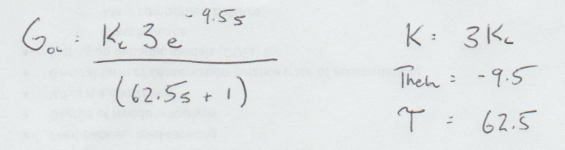 G_OL = K_c 3e^-9.5s
(62.5s + 1)
K = 3K_c
Then = -9.5
τ = 62.5